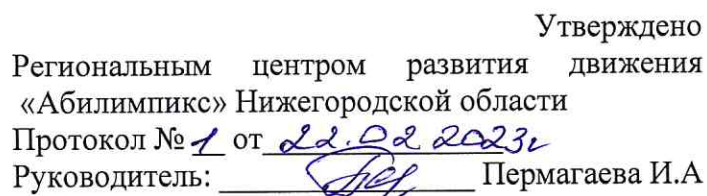 Утверждено
Региональным центром развития движения
«Абилимпикс» Нижегородской области
Протокол № 1 от 22.02 2023г
Руководитель: Пермагаева И.А